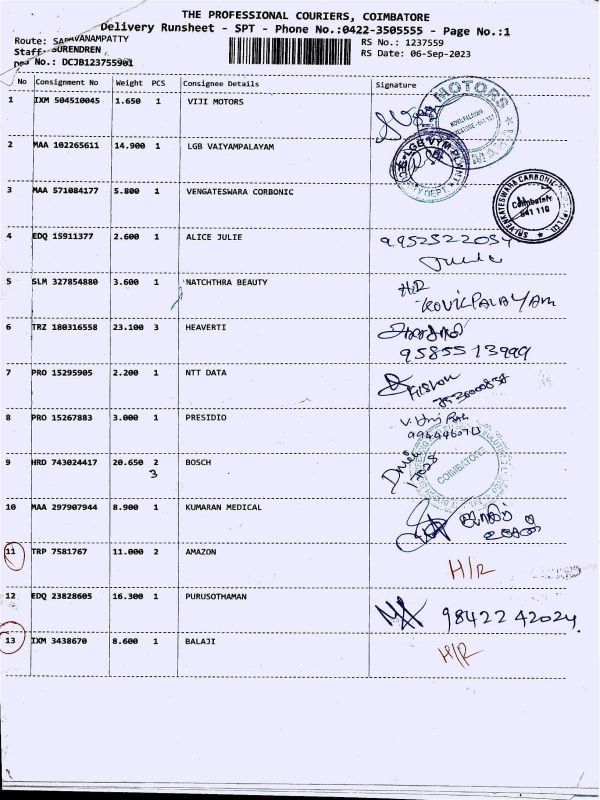 THE PROFESSIONAL COURIERS, COIMBATORE
Delivery Runsheet - SPT - Phone No.:0422-3505555 - Page No.:1
Route: SARAVANAMPATTY
RS No.: 1237559
Staff: SURENDREN
RS Date: 06-Sep-2023
No.: DCJB123755901
No Consignment No Weight PCS Consignee Details Signature
1 IXM 504510045 1.650 1 VIJI MOTORS
MOTORS
2 MAA 102265611 14.900 1 LGB VAIYAMPALAYAM
3 MAA 571084177 5.800 1 VENGATESWARA CORBONIC
Coimbatore
641 110
4 EDQ 15911377 2.600 1 ALICE JULIE
9952522054
5 SLM 327854880 3.600 1 NATCHTHRA BEAUTY
H/R
KOVILPALAYAM
6 TRZ 180316558 23.100 3 HEAVERTI
9585513999
7 PRO 15295905 2.200 1 NTT DATA
8 PRO 15267883 3.000 1 PRESIDIO
9 HRD 743024417 20.650 2 BOSCH
3
COIMBATORE
10 MAA 297907944 8.900 1 KUMARAN MEDICAL
11 TRP 7581767 11.000 2 AMAZON
H/R
12 EDQ 23828605 16.300 1 PURUSOTHAMAN
98422 42024
13 IXM 3438670 8.600 1 BALAJI
H/R